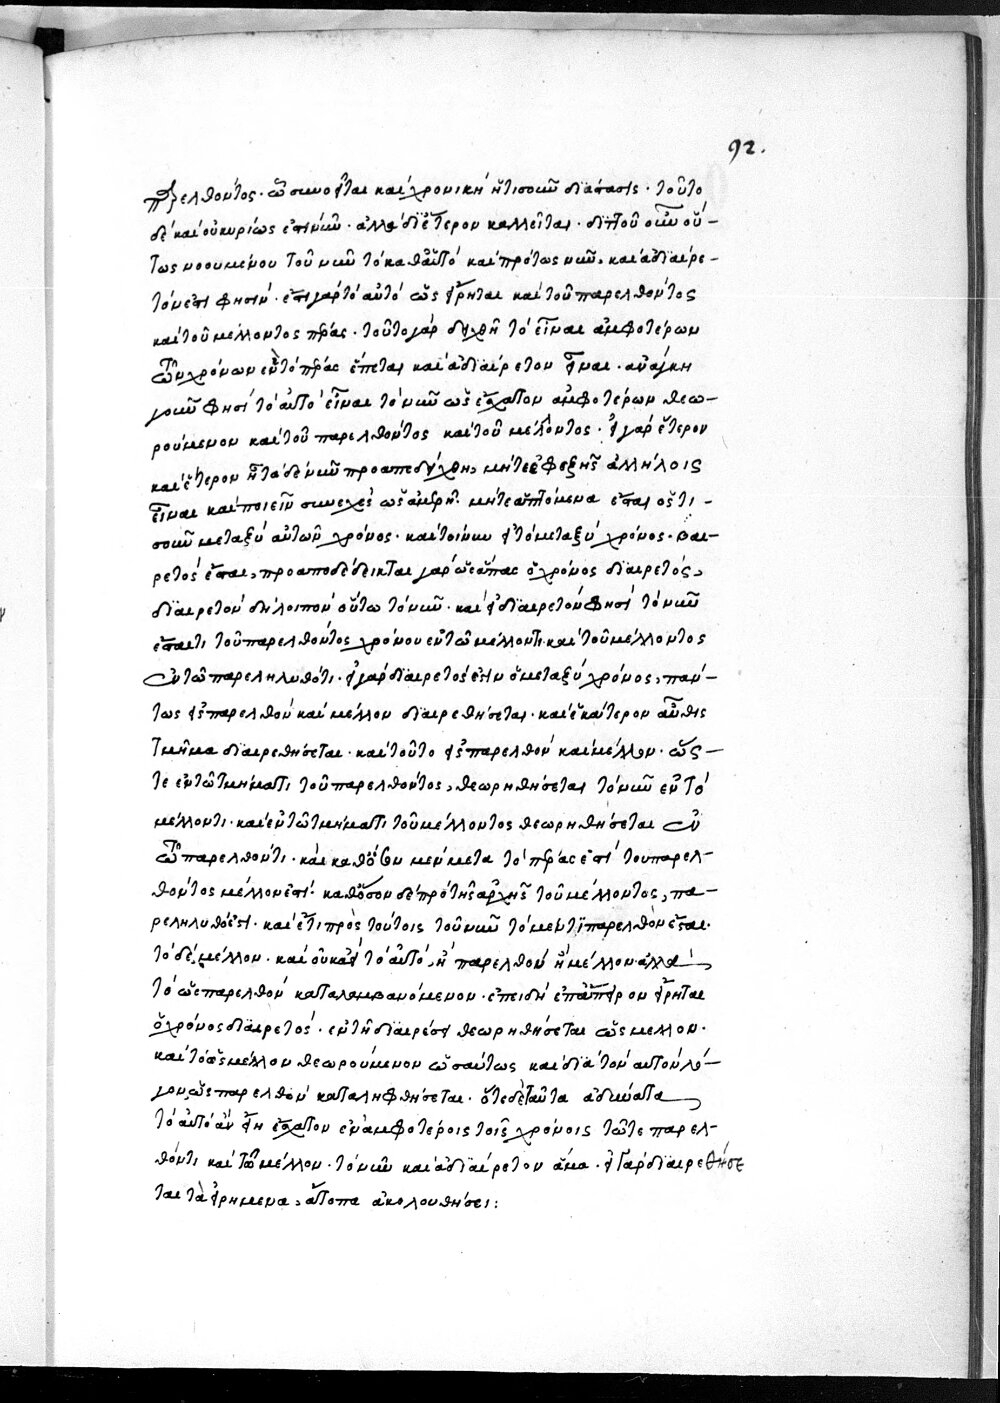 92.
παρελθόντος. ᾧ συνοῦται καὶ χρονικὴ ἡτισοῦν διάστασις. τοῦτο
δὲ καὶ οὐ κυρίως ἐστὶ νῦν. ἀλλὰ δι' ἕτερον καλεῖται. διττοῦ οὖν οὕ-
τως νοουμένου τοῦ νῦν τὸ καθ' αὑτὸ καὶ πρώτως νῦν, καὶ ἀδιαίρε-
τόν ἐστί φησιν. ἔστι γὰρ τὸ αὐτὸ ὡς εἴρηται καὶ τοῦ παρελθόντος
καὶ τοῦ μέλλοντος πέρας. τοῦτο γὰρ δειχθῇ τὸ εἶναι ἀμφοτέρων
τῶν χρόνων ἓν τὸ πέρας ἕπεται καὶ ἀδιαίρετον εἶναι. ἀνάγκη
γοῦν φησὶ τὸ αὐτὸ εἶναι τὸ νῦν ὡς ἔσχατον ἀμφοτέρων θεω-
ρούμενον καὶ τοῦ παρελθόντος καὶ τοῦ μέλλοντος. εἰ γὰρ ἕτερον
καὶ ἕτερον ᾖ τάδε νῦν προαπεδείχθη, μήτε ἐφεξῆς ἀλλήλοις
εἶναι καὶ ποιεῖν συνεχὲς ὡς ἀμερῆ. μήτε ἁπτόμενα ἔσται ὅστι-
σοῦν μεταξὺ αὐτῶν χρόνος. καὶ τοίνυν εἰ τὸ μεταξὺ χρόνος. διαι-
ρετὸς ἔσται, προαποδέδεικται γὰρ ὡς ἅπας ὁ χρόνος διαιρετός,
διαιρετὸν δηλοιπὸν οὕτω τὸ νῦν. καὶ εἰ διαιρετόν φησὶ τὸ νῦν
ἔσται τι τοῦ παρελθόντος χρόνου ἐν τῷ μέλλοντι. καὶ τοῦ μέλλοντος
ἐν τῷ παρεληλυθότι. εἰ γὰρ διαιρετός ἐστιν ὁ μεταξὺ χρόνος, πάν-
τως εἰς παρελθὸν καὶ μέλλον διαιρεθήσεται. καὶ ἑκάτερον αὖθις
τμῆμα διαιρεθήσεται. καὶ τοῦτο εἰς παρελθὸν καὶ μέλλον. ὥς-
τε ἐν τῷ τμήματι τοῦ παρελθόντος, θεωρηθήσεται τὸ νῦν ἐν τῷ
μέλλοντι. καὶ ἐν τῷ τμήματι τοῦ μέλλοντος θεωρηθήσεται ἐν
τῷ παρελθόντι. καὶ καθόσον μὲν μετὰ τὸ πέρας ἐστὶ τοῦ παρελ-
θόντος μέλλον ἐστί. καθόσον δὲ πρὸ τῆς ἀρχῆς τοῦ μέλλοντος, πα-
ρεληλυθός ἐστι. καὶ ἔτι πρὸς τούτοις τοῦ νῦν τὸ μέν τι παρελθὸν ἔσται.
τὸ δέ, μέλλον. καὶ οὐ κατὰ τὸ αὐτό, ἢ παρελθὸν ἢ μέλλον. ἀλλὰ
τὸ ὡς παρελθὸν καταλαμβανόμενον. ἐπειδὴ ἐπ' ἄπειρον εἴρηται
ὁ χρόνος διαιρετός. ἐν τῇ διαιρέσει θεωρηθήσεται ὡς μέλλον.
καὶ τὸ ὡς μέλλον θεωρούμενον ὡσαύτως καὶ διὰ τὸν αὐτὸν λό-
γον, ὡς παρελθὸν καταληφθήσεται. ὅτε δὲ ταῦτα ἀδύνατα
τὸ αὐτὸ ἂν εἴη ἔσχατον ἐν ἀμφοτέροις τοῖς χρόνοις τῷ τε παρελ-
θόντι καὶ τῷ μέλλον. τὸ νῦν καὶ ἀδιαίρετον ἅμα. εἰ γὰρ διαιρεθήσε
ται τὰ εἰρημένα, ἄτοπα ἀκολουθήσει: